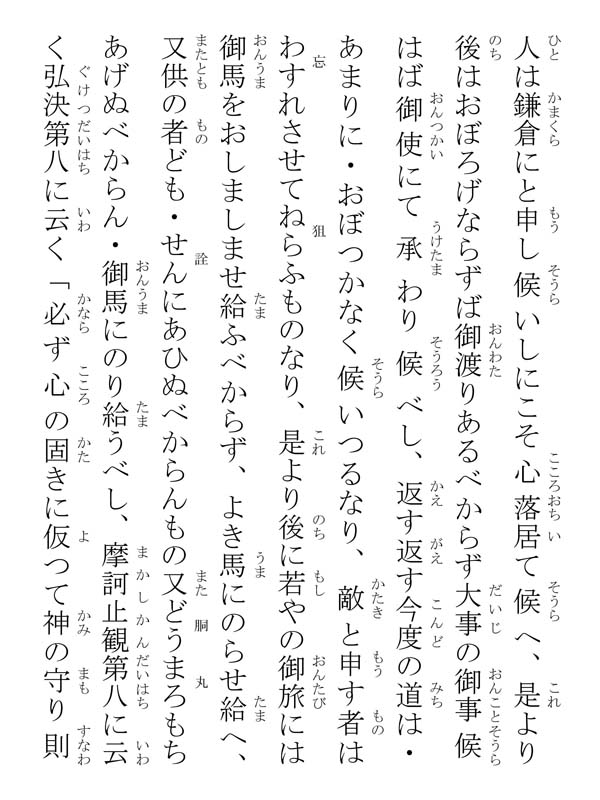 人は鎌倉にと申し候いしにこそ心落居て候へ、是より
後はおぼろげならずば御渡りあるべからず大事の御事候
はば御使にて承わり候べし、返す返す今度の道は・
あまりに・おぼつかなく候いつるなり、敵と申す者は
わすれさせてねらふものなり、是より後に若やの御旅には
御馬をおしましませ給ふべからず、よき馬にのらせ給へ、
又供の者ども・せんにあひぬべからんもの又どうまろもち
あげぬべからん・御馬にのり給うべし、摩訶止観第八に云
く弘決第八に云く「必ず心の固きに仮つて神の守り則